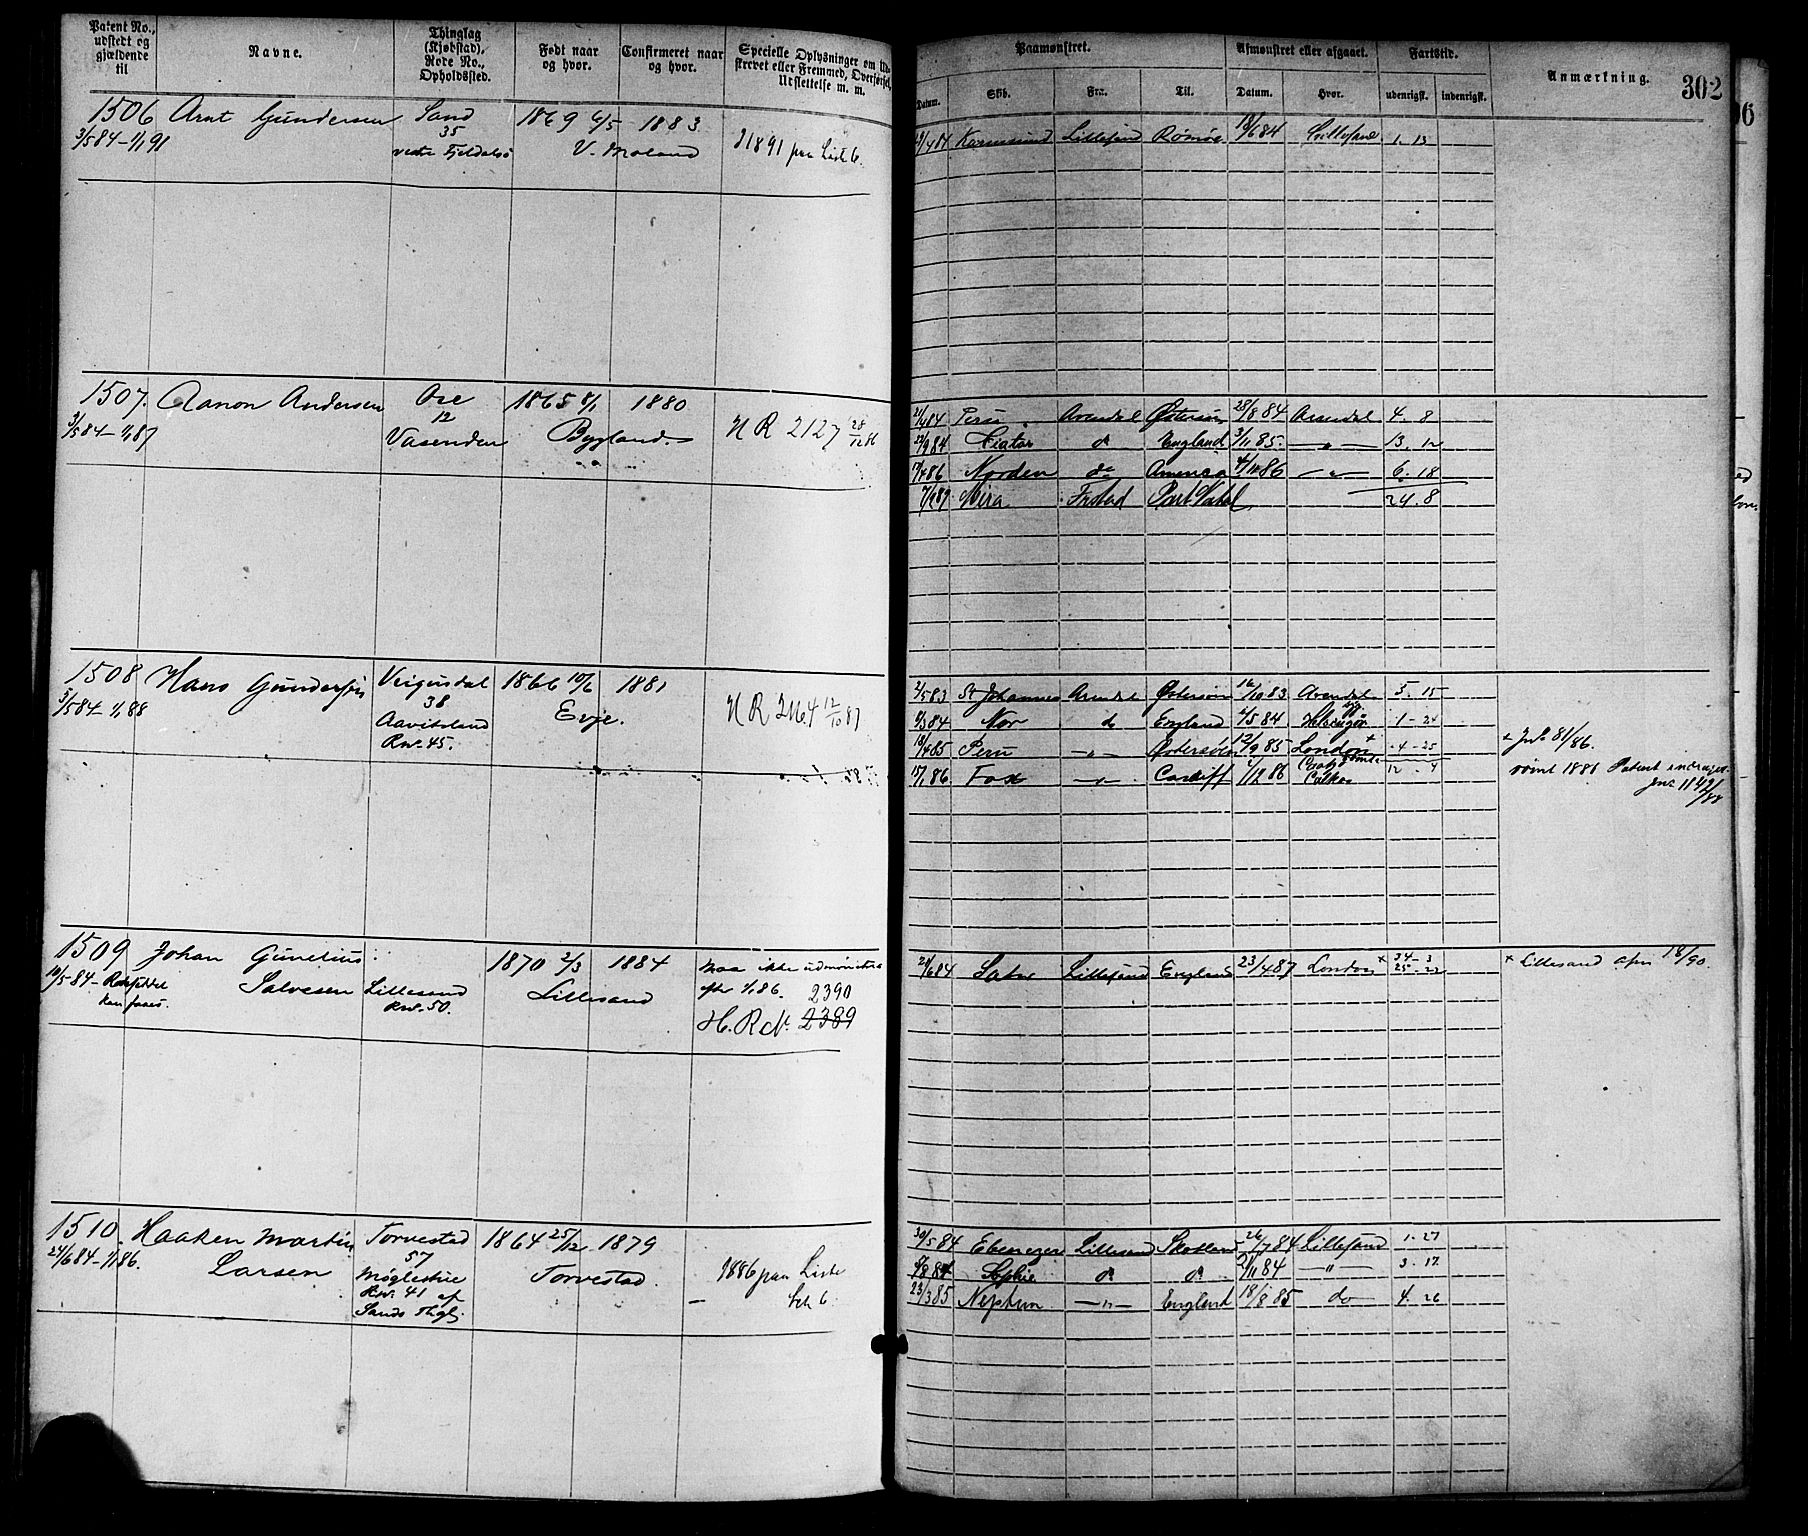 Patent No., udstedt og gjældende til
Navne.
Thinglag (Kjøbstad). Rode No., Opholdssted.
Født naar og hvor.
Confirmeret naar og hvor.
Specielle Oplysninger om Ud-
skrevet eller Fremmed, Overførsel,
Udslettelse m. m.
Paamønstret.
Afmønstret eller afgaaet.
Fartstid.
Anmærkning.
302
Datum.
Skib.
Fra.
Til.
Datum.
Hvor.
udenrigsk.
indenrigsk.
1506 Arnt Gundersen Sand 1869 6/5 1883
3/5 84 - 1/1 91 35 V. Moland
vestre Fjeldalsø
21891 paa Liste 6.
Lillesand 18/6 84 Lillesand 1. 15
1507. Aanon Andersen Ose 1865 8/1 1880
3/5 84 - 1/1 87 12 Bygland
Vasenden
H R 2127 28/12 86
21/4 84 Peru Arendal Østersøn 28/8 84 Arendal 4. 8
22/9 84 do England 3/11 85 - " - 13. 12
17/4 86 Norden do America 4/11 86 - " - 6. 18
7/2 87 Mira Frstad Port Natal 24. 8
1508 Hans Gundersen Veigusdal 1866 10/6 1881
5/5 84 - 1/1 88 38 Evje.
Aavitsland
Rno. 45.
H R 2164 12/10 87
2/5 83 St Johannes Arendal Østersøn 16/10 83 Arendal 5. 15
Nor do England 2/5 84 Helsingør 1 - 24
10/4 85 Peru - " - Østersøen 12/9 85 London + 4 - 25
15/1 86 Fox - " - Cardiff 1/12 86 12 - 4
+ Jno 81/86.
rømt 1886 Patent
1509 Johan Gunelius 1870 2/3 1884
10/5 84 - Salvesen Lillesand Lillesand
Rno. 50.
maa ikke udmønstres
efter 1/1 86. 2390
H. R No. 2389
20/6 84 Lillesand England 23/4 87 London + 34 - 3
25 - 22
+ Lillesand
1510. Haaken Martin Torvestad 1864 25/12 1879
24/6 84 - 1/1 86. Larsen 57 Torvestad.
Møglestue
Rno. 41 af
Sands Thgl.
1886 paa Liste
Litr 6.
30/5 84 Ebenezer Lillesand Skotland 26/7 84 Lillesand 1. 27
Sophie do do 2/11 84 - " - 3. 17
23/3 85 Neptun - " - England 18/8 85 do 4. 26